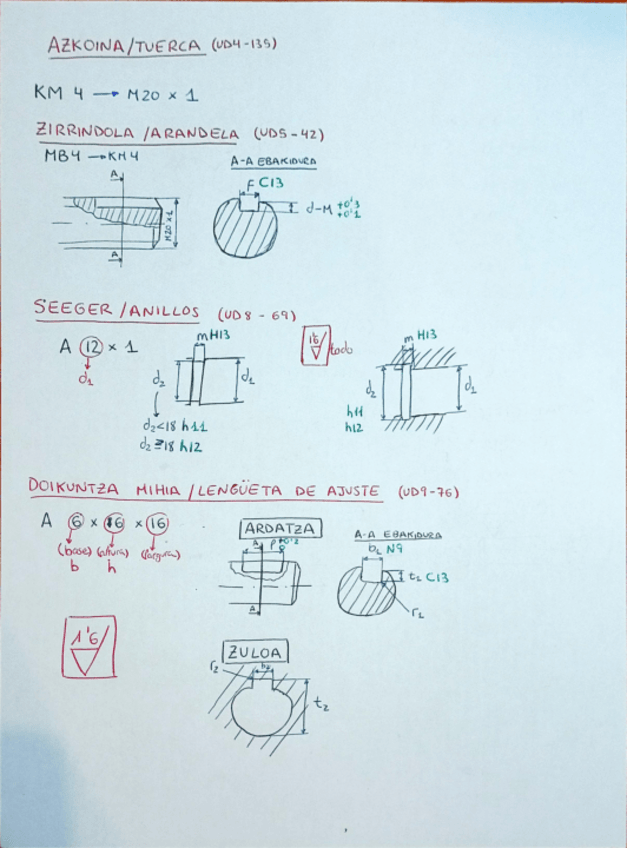 AZKOINA/TUERCA (UD4-135)
KM 4 → M20 × 1
ZIRRINDOLA/ARANDELA (UD5-42)
MB4 → KM4
A-A EBAKIDURA
A
F C13
d-M +0'3
+0'1
M20×1
A
SEEGER/ANILLOS (UD8-69)
A 12 × 1
d1
m H13
d2
d1
d2<18 h11
d2≥18 h12
1'6
todo
m H13
d2
d1
h11
h12
DOIKUNTZA MIHIA/LENGÜETA DE AJUSTE (UD9-76)
A 6 × 6 × 16
(base) (altura) (largura)
b h
ARDATZA
A
A
A-A EBAKIDURA
b1 N9
t1 C13
r1
1'6
ZULOA
r2
t2